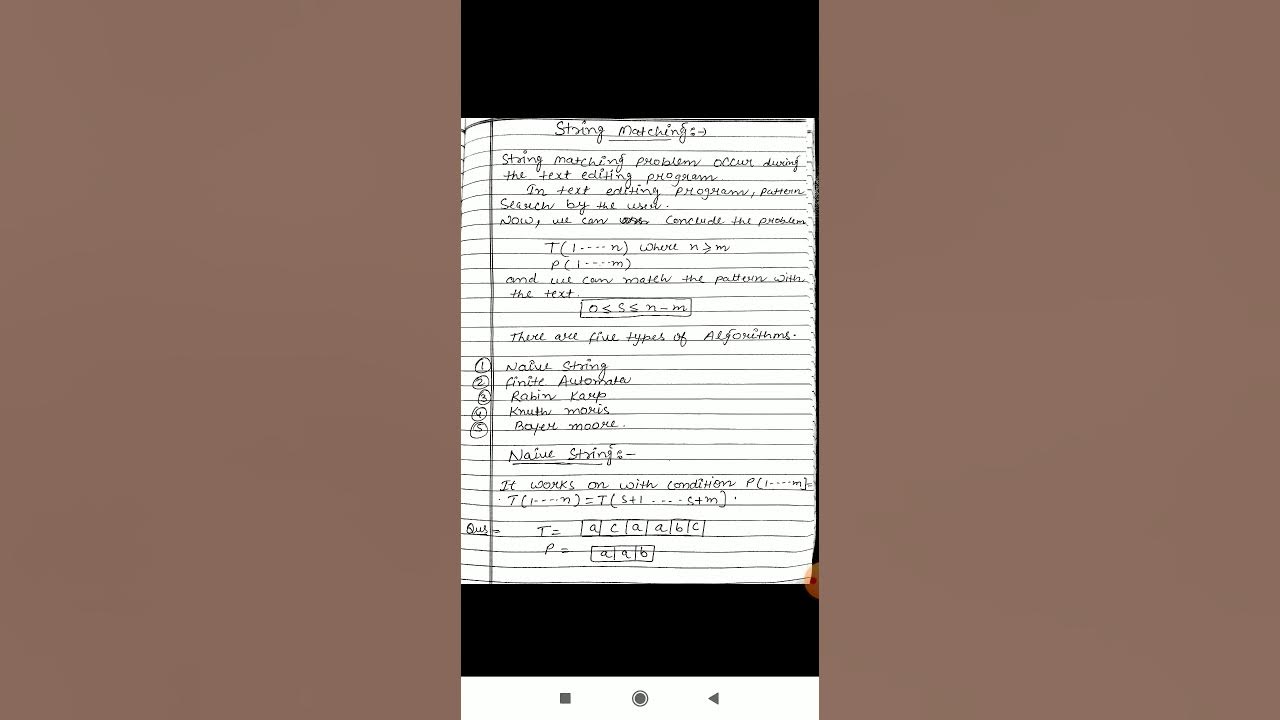 String Matching:→
String matching problem occur during
the text editing program.
In text editing program, pattern
Search by the user.
Now, we can conclude the problem
T(1----n) where n≥m
P(1----m)
and we can match the pattern with
the text.
0≤S≤n-m
There are five types of Algorithms.
① Naive String
② finite Automata
③ Rabin Karp
④ Knuth moris
⑤ Boyer moore.
Naive String:-
It works on with condition P(1----m]=
T(1----n)=T(S+1 ---- S+m].
Qus= T= |a|c|a|a|b|c|
P= |a|a|b|